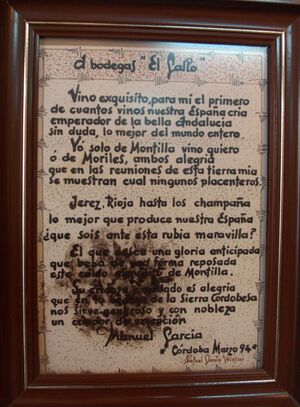 A bodegas "El Gallo"
Vino exquisito, para mí el primero
de cuantos vinos nuestra España cría
emperador de la bella Andalucía
sin duda, lo mejor del mundo entero.
Yó solo de Montilla vino quiero
ó de Moriles, ambos alegria
que en las reuniones de esta tierra mia
se muestran cual ningunos placenteros.
Jerez, Rioja hasta los champaña
lo mejor que produce nuestra España
¿que sois ante ésta rubia maravilla?
El que desea una gloria anticipada
que beba de una forma reposada
este caldo exquisito de Montilla.
Su crianza y cuidado es alegria
que en la de la Sierra Cordobesa
nos sirve generoso y con nobleza
un criador de excepción
Manuel García
Córdoba Marzo 94
Rafael García Velasco